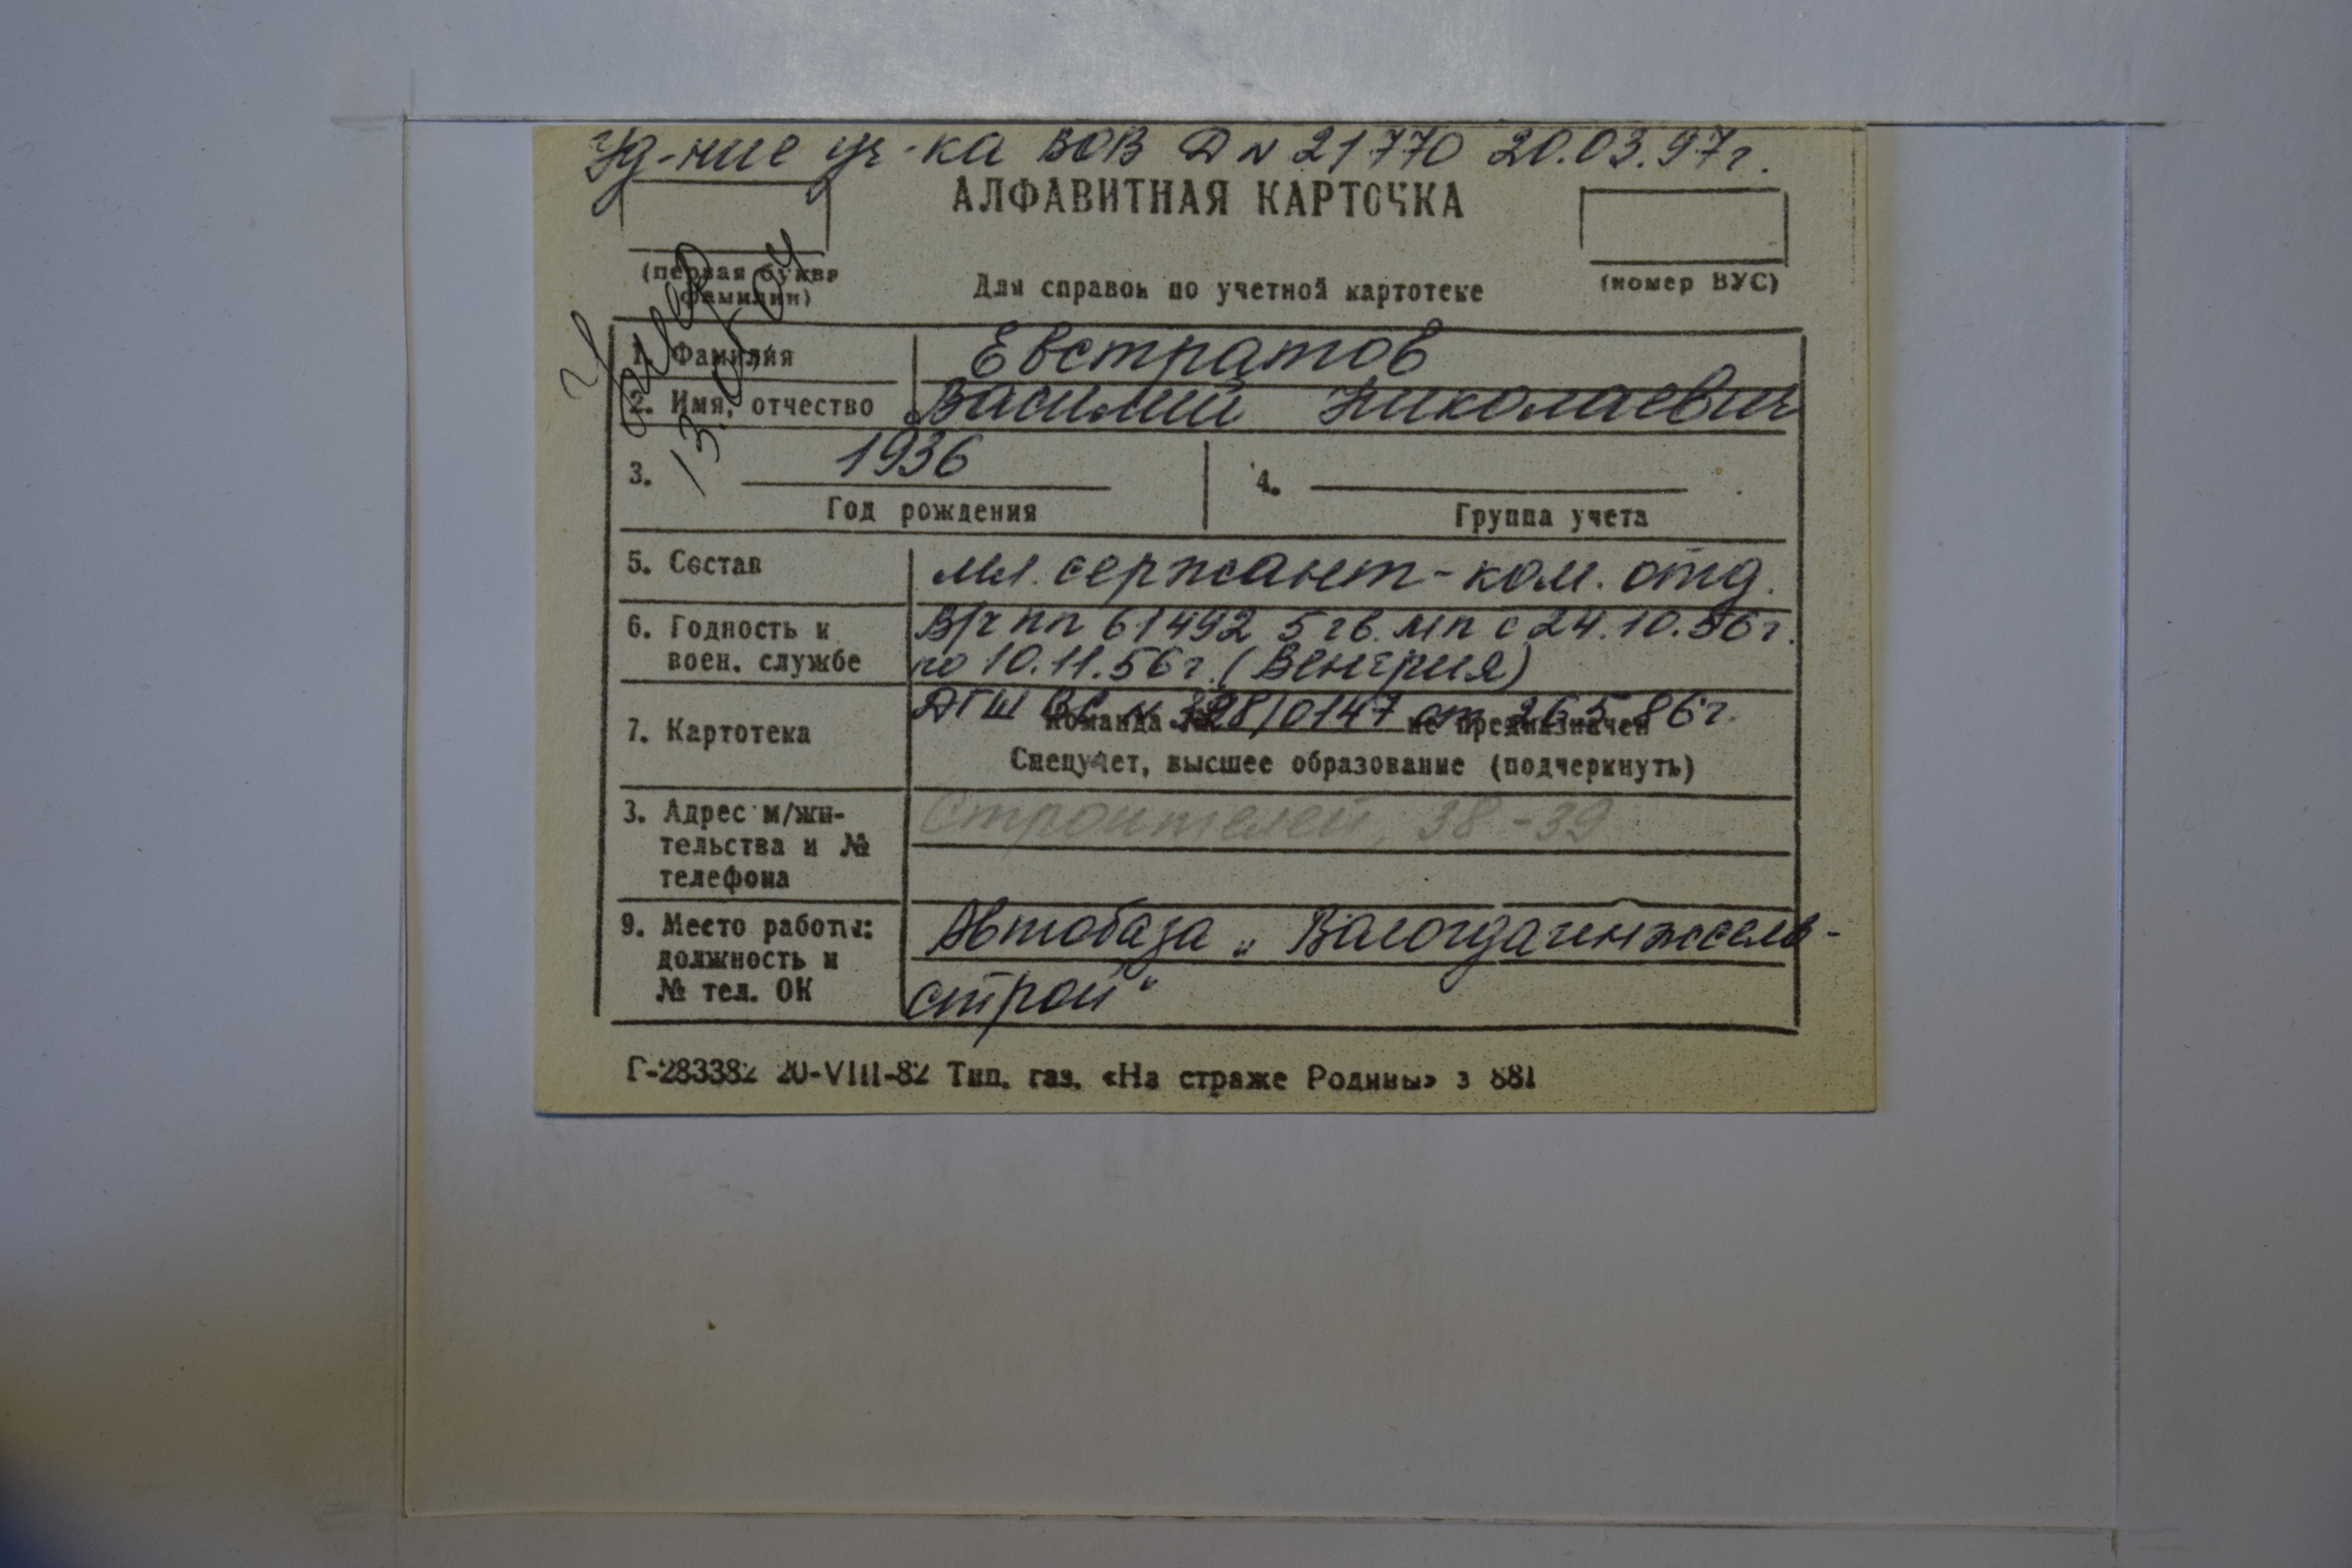 Уд-ние уч-ка ВОВ Д № 21770 20.03.97г.
АЛФАВИТНАЯ КАРТОЧКА
(первая буква
фамилии)
Для справок по учетной картотеке
(номер ВУС)
умер
13.
04
1. Фамилия Евстратов
2. Имя, отчество Василий Николаевич
3. 1936
4.
Год рождения
Группа учета
5. Состав мл. сержант-ком. отд.
6. Годность к воен. службе В/ч пп 61492 5 гв. мп с 24.10.56г.
по 10.11.56г. (Венгрия)
7. Картотека ДГШ ВС № 328/0147 от 26.5.86г.
Команда № не предназначен
Спецучет, высшее образование (подчеркнуть)
3. Адрес м/жи- Строителей, 38-39
тельства и №
телефона
9. Место работы: Автобаза „Вологдаинжсель-
должность и
№ тел. ОК строй"
Г-283382 20-VIII-82 Тип. газ. «На страже Родины» з 881